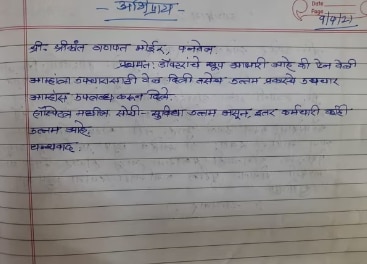 अभिप्राय
Date
Page
9/7/21
श्री. श्रीकांत गणपत मोईर, पनवेल
प्रथमतः डॉक्टरांचे खूप आभारी आहे की ऐन वेळी
आम्हाला उपचारासाठी वेळ दिली तसेच उत्तम प्रकारचे उपचार
आम्हांस उपलब्ध करून दिले.
हॉस्पिटल मधील सोयी-सुविधा उत्तम असून, इतर कर्मचारी वर्गही
उत्तम आहे.
धन्यवाद.